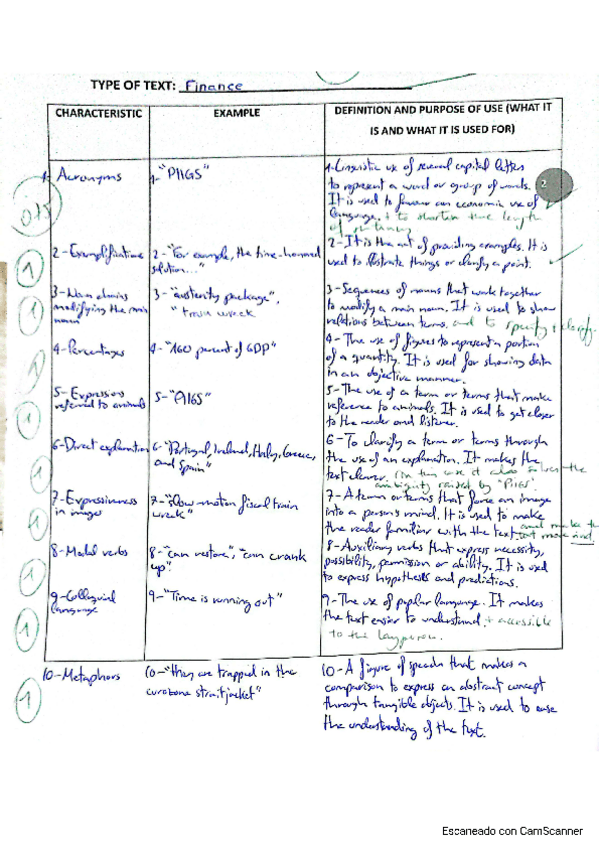 TYPE OF TEXT: Finance
CHARACTERISTIC
EXAMPLE
DEFINITION AND PURPOSE OF USE (WHAT IT
IS AND WHAT IT IS USED FOR)
1- Acronyms
1- "PIIGS"
1- Linguistic use of several capital letters
to represent a word or group of words.
It is used to favour an economic use of
language, + to shorten the length
of
2
0'75
2- Exemplification
2- "For example, the time-honored
solution..."
2- It is the act of providing examples. It is
used to illustrate things or clarify a point.
1
3- Noun chains
modifying the main
noun
3- "austerity package",
"train wreck
3- Sequences of nouns that work together
to modify a main noun. It is used to show
relations between terms. and to specify + clarify.
1
4- Percentages
4- "160 percent of GDP"
4- The use of figures to represent a portion
of a quantity. It is used for showing data
in an objective manner.
1
5- Expressions
referred to animals
5- "PIIGS"
5- The use of a term or terms that make
reference to animals. It is used to get closer
to the reader and listener.
1
6- Direct explanation
6- "Portugal, Ireland, Italy, Greece,
and Spain"
6- To clarify a term or terms through
the use of an explanation. It makes the
text clearer. (in this case it also solves the
ambiguity raised by "PIIGS".
1
7- Expressiveness
in images
7- "slow-motion fiscal train
wreck"
7- A term or terms that force an image
into a person's mind. It is used to make
the reader familiar with the text and make the
text more vivid.
1
8- Modal verbs
8- "can restore", "can crank
up".
8- Auxiliary verbs that express necessity,
possibility, permission or ability. It is used
to express hypothesis and predictions.
1
9- Colloquial
language
9- "Time is running out"
9- The use of popular language. It makes
the text easier to understand, + accessible
to the layperson.
1
10- Metaphors
10- "they are trapped in the
eurozone straitjacket"
10- A figure of speech that makes a
comparison to express an abstract concept
through tangible objects. It is used to ease
the understanding of the text.
1
Escaneado con CamScanner